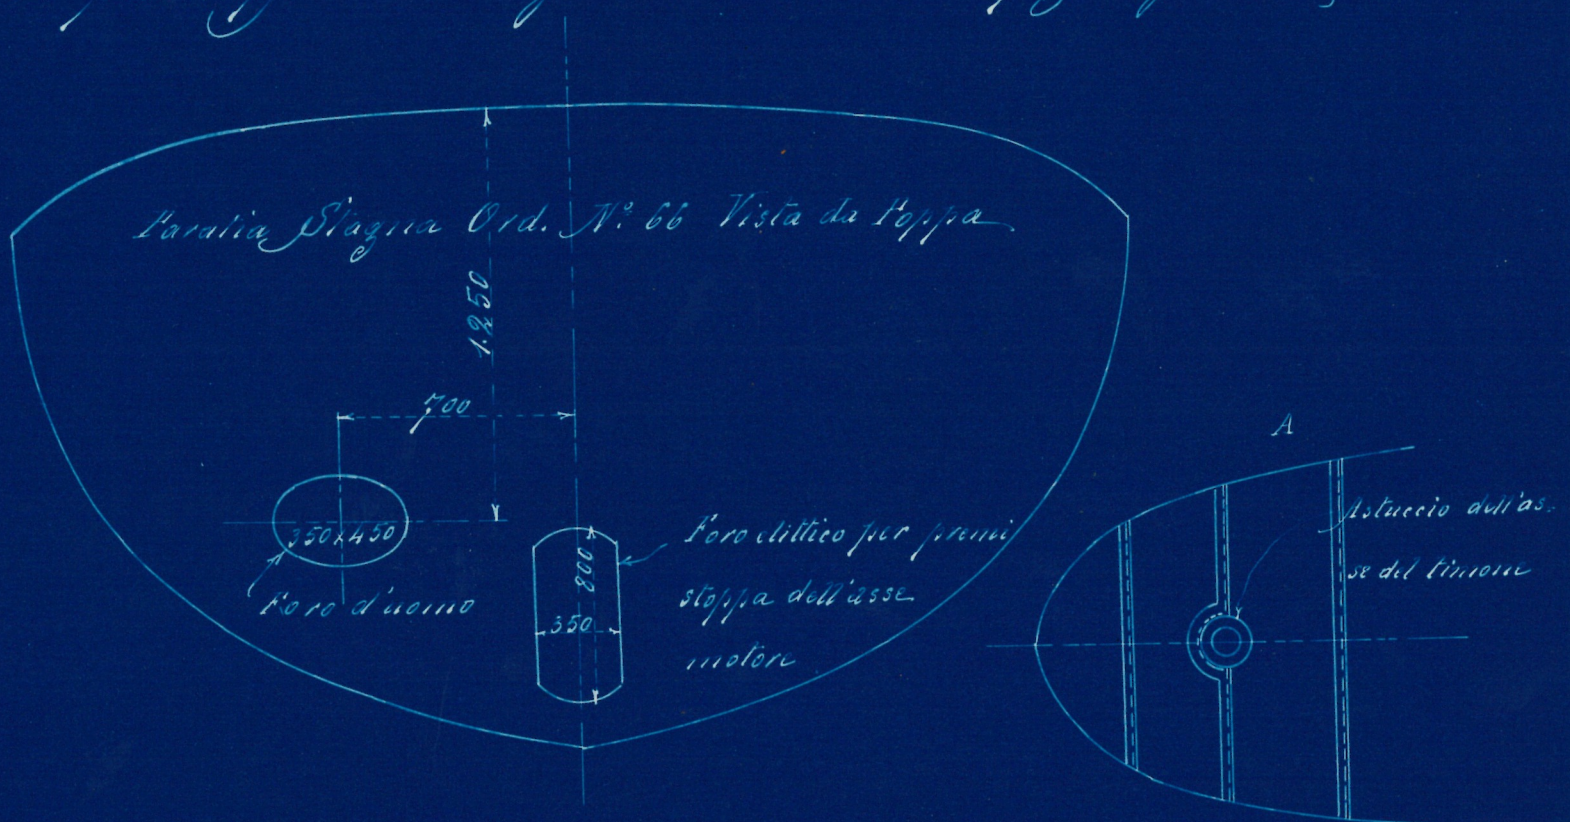 Paratia Stagna Ord. N.º 66 Vista da Poppa
1.250
700
A
350x450
Foro d'uomo
800
350
Foro elittico per premi
stoppa dell'asse
motore
Astuccio dell'as-
se del timone